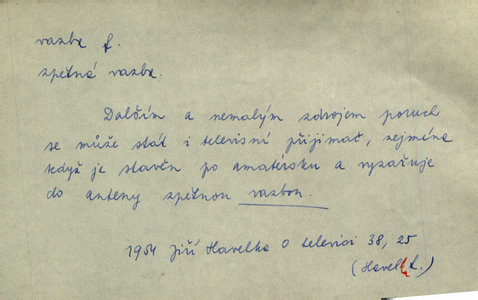 vazba f.
zpětná vazba.
Dalším a nemalým zdrojem poruch
se může stát i televisní přijímač, zejména
když je stavěn po amatérsku a vyzařuje
do anteny zpětnou vazbou.
1954 Jiří Havelka O televisi 38, 25
(Havelk J.)